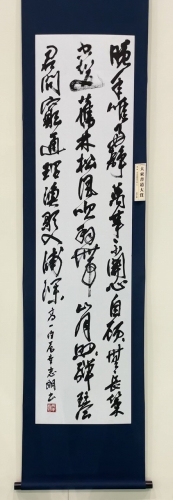 晚年惟好靜萬事不關心自顧無長策
空知返舊林松風吹解帶山月照彈琴
君問窮通理漁歌入浦深